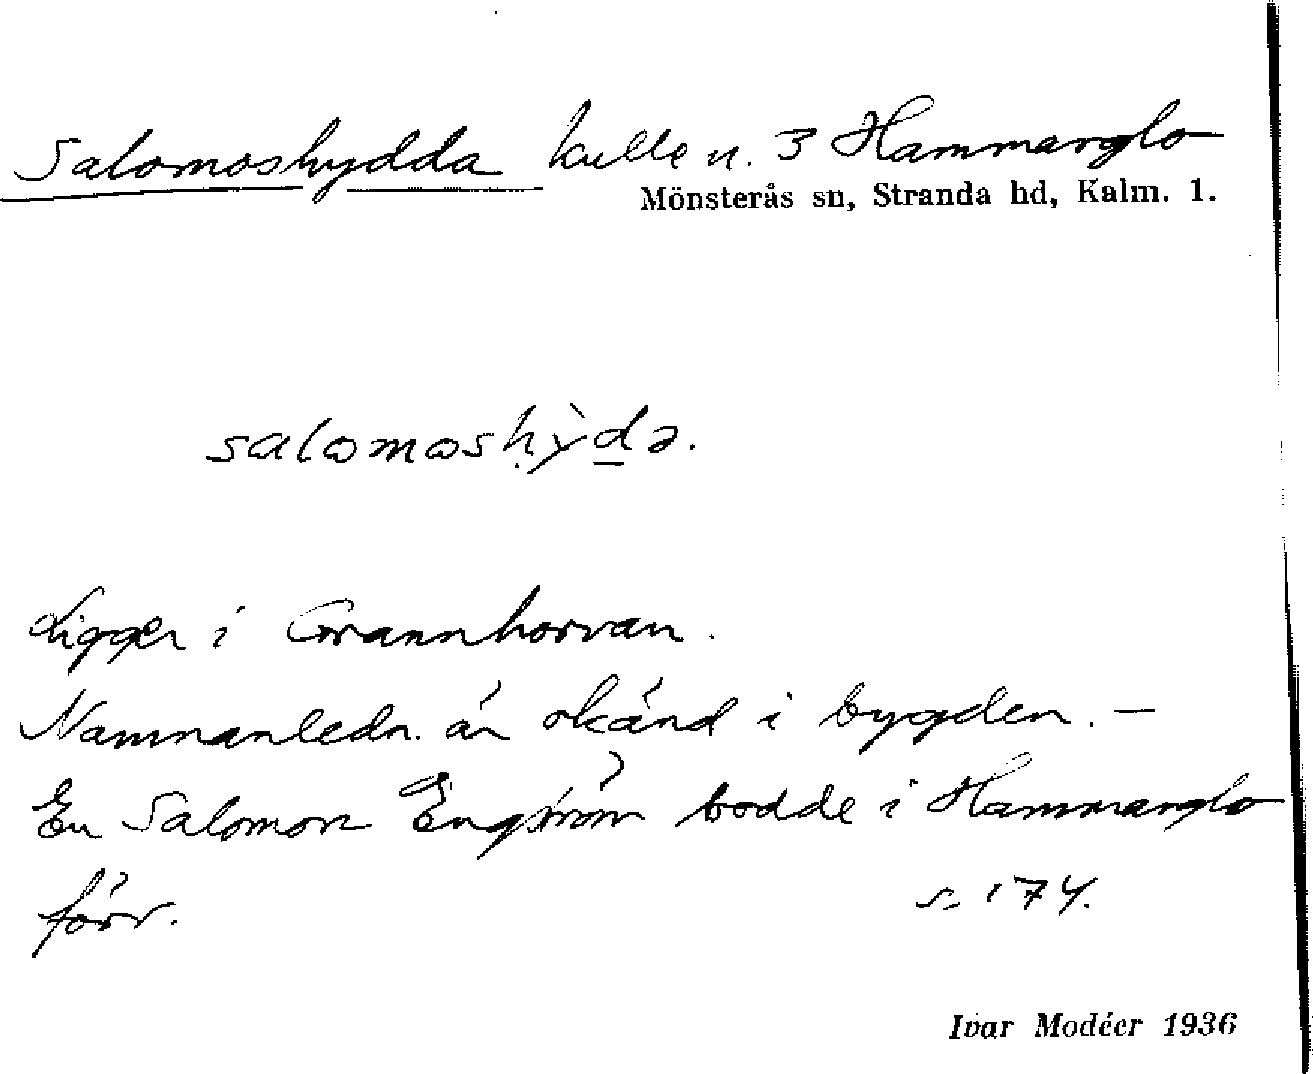 Salomoshydda kulle n. 3 Hammarglo
Mönsterås sn, Stranda hd, Kalm. l.
salomoshỳdə.
Ligger i Grannhorvan.
Namnanledn. är okänd i bygden. –
En Salomon Engström bodde i Hammarglo
förr.
s. 174.
Ivar Modéer 1936